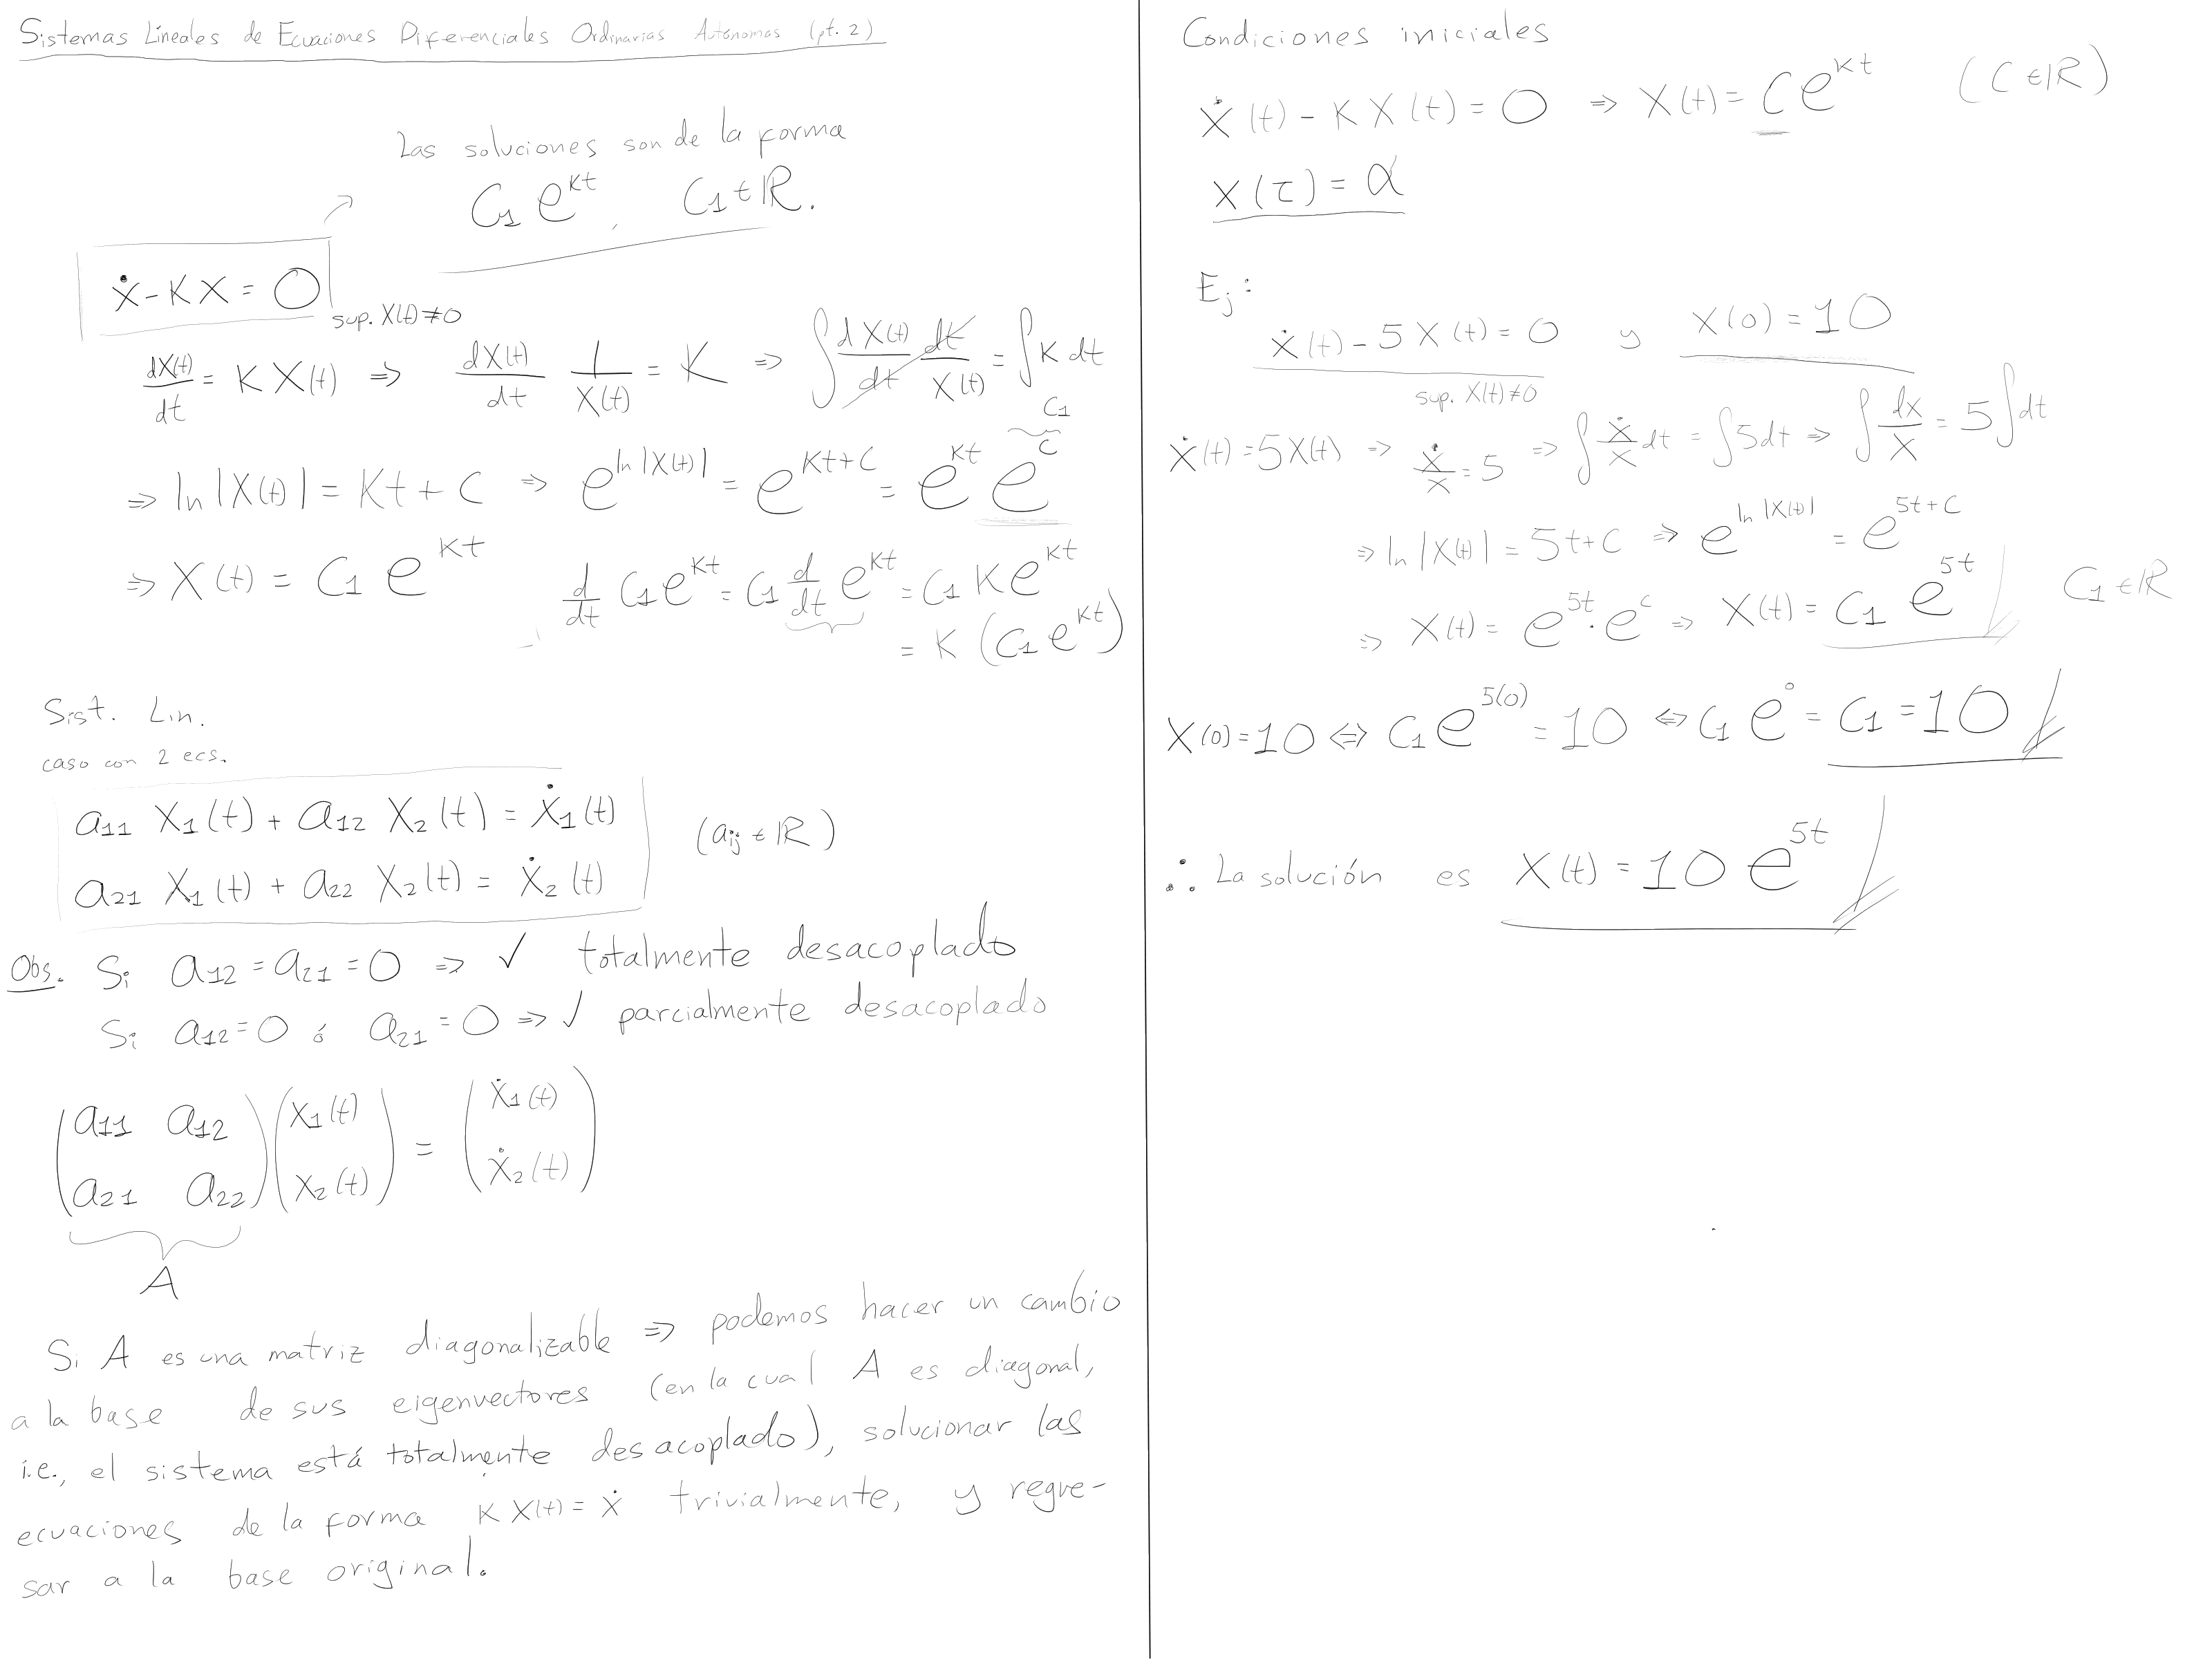 Sistemas Lineales de Ecuaciones Diferenciales Ordinarias Autónomas (pt. 2)
Las soluciones son de la forma
C₁ e^{Kt}, C₁ ∈ ℝ.
ẋ - Kx = 0
sup. X(t) ≠ 0
dX(t)/dt = K X(t) ⇒ dX(t)/dt 1/X(t) = K ⇒ ∫ dX(t)/dt dt/X(t) = ∫ K dt
⇒ ln|X(t)| = Kt + C ⇒ e^{ln|X(t)|} = e^{Kt+C} = e^{Kt} e^{C} C₁
⇒ X(t) = C₁ e^{Kt} d/dt C₁ e^{Kt} = C₁ d/dt e^{Kt} = C₁ K e^{Kt}
= K (C₁ e^{Kt})
Sist. Lin.
caso con 2 ecs.
a₁₁ X₁(t) + a₁₂ X₂(t) = Ẋ₁(t)
a₂₁ X₁(t) + a₂₂ X₂(t) = Ẋ₂(t)
(aᵢⱼ ∈ ℝ)
Obs. Si a₁₂ = a₂₁ = 0 ⇒ ✓ totalmente desacoplado
Si a₁₂ = 0 ó a₂₁ = 0 ⇒ ✓ parcialmente desacoplado
(a₁₁ a₁₂) (X₁(t)) = (Ẋ₁(t))
(a₂₁ a₂₂) (X₂(t)) (Ẋ₂(t))
A
Si A es una matriz diagonalizable ⇒ podemos hacer un cambio
a la base de sus eigenvectores (en la cual A es diagonal,
i.e., el sistema está totalmente desacoplado), solucionar las
ecuaciones de la forma K X(t) = ẋ trivialmente, y regre-
sar a la base original.
Condiciones iniciales
Ẋ(t) - K X(t) = 0 ⇒ X(t) = C e^{Kt} (C ∈ ℝ)
X(τ) = α
Ej:
Ẋ(t) - 5 X(t) = 0 y X(0) = 10
sup. X(t) ≠ 0
Ẋ(t) = 5X(t) ⇒ Ẋ/X = 5 ⇒ ∫ Ẋ/X dt = ∫ 5dt ⇒ ∫ dx/X = 5 ∫ dt
⇒ ln|X(t)| = 5t + C ⇒ e^{ln|X(t)|} = e^{5t+C}
⇒ X(t) = e^{5t} · e^{C} ⇒ X(t) = C₁ e^{5t} C₁ ∈ ℝ
X(0) = 10 ⇔ C₁ e^{5(0)} = 10 ⇔ C₁ e⁰ = C₁ = 10
∴ La solución es X(t) = 10 e^{5t}